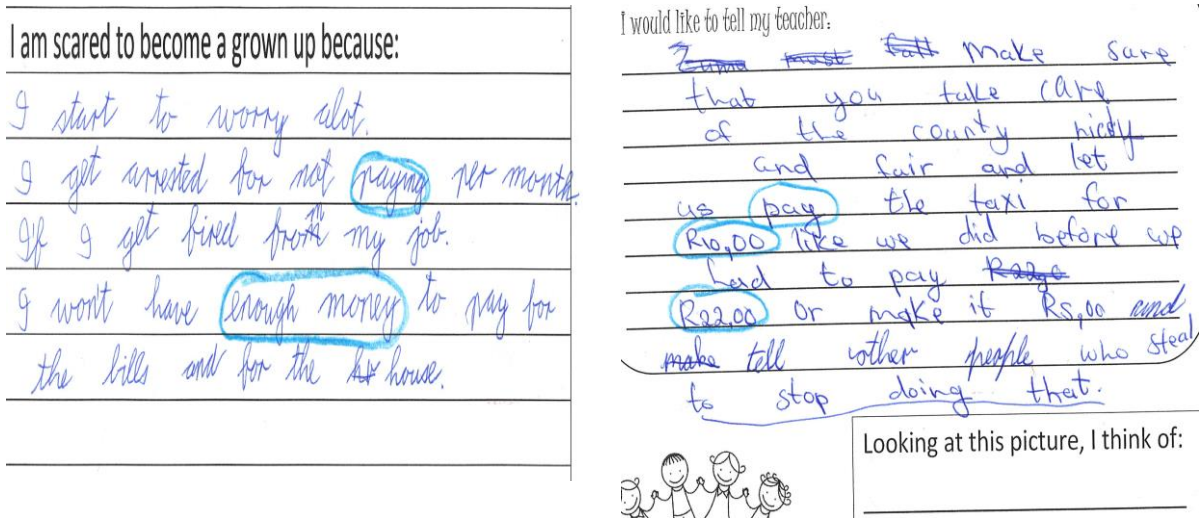 I am scared to become a grown up because:
I start to worry alot.
I get arrested for not paying per month.
If I get fired from my job.
I won't have enough money to pay for
the bills and for the house.
I would like to tell my teacher:
must make sure
that you take care
of the county
and fair and let
us pay the taxi for
R10,00 like we did before we
had to pay
R22,00 or make it R5,00 and
make tell other people who steal
to stop doing that.
Looking at this picture, I think of: